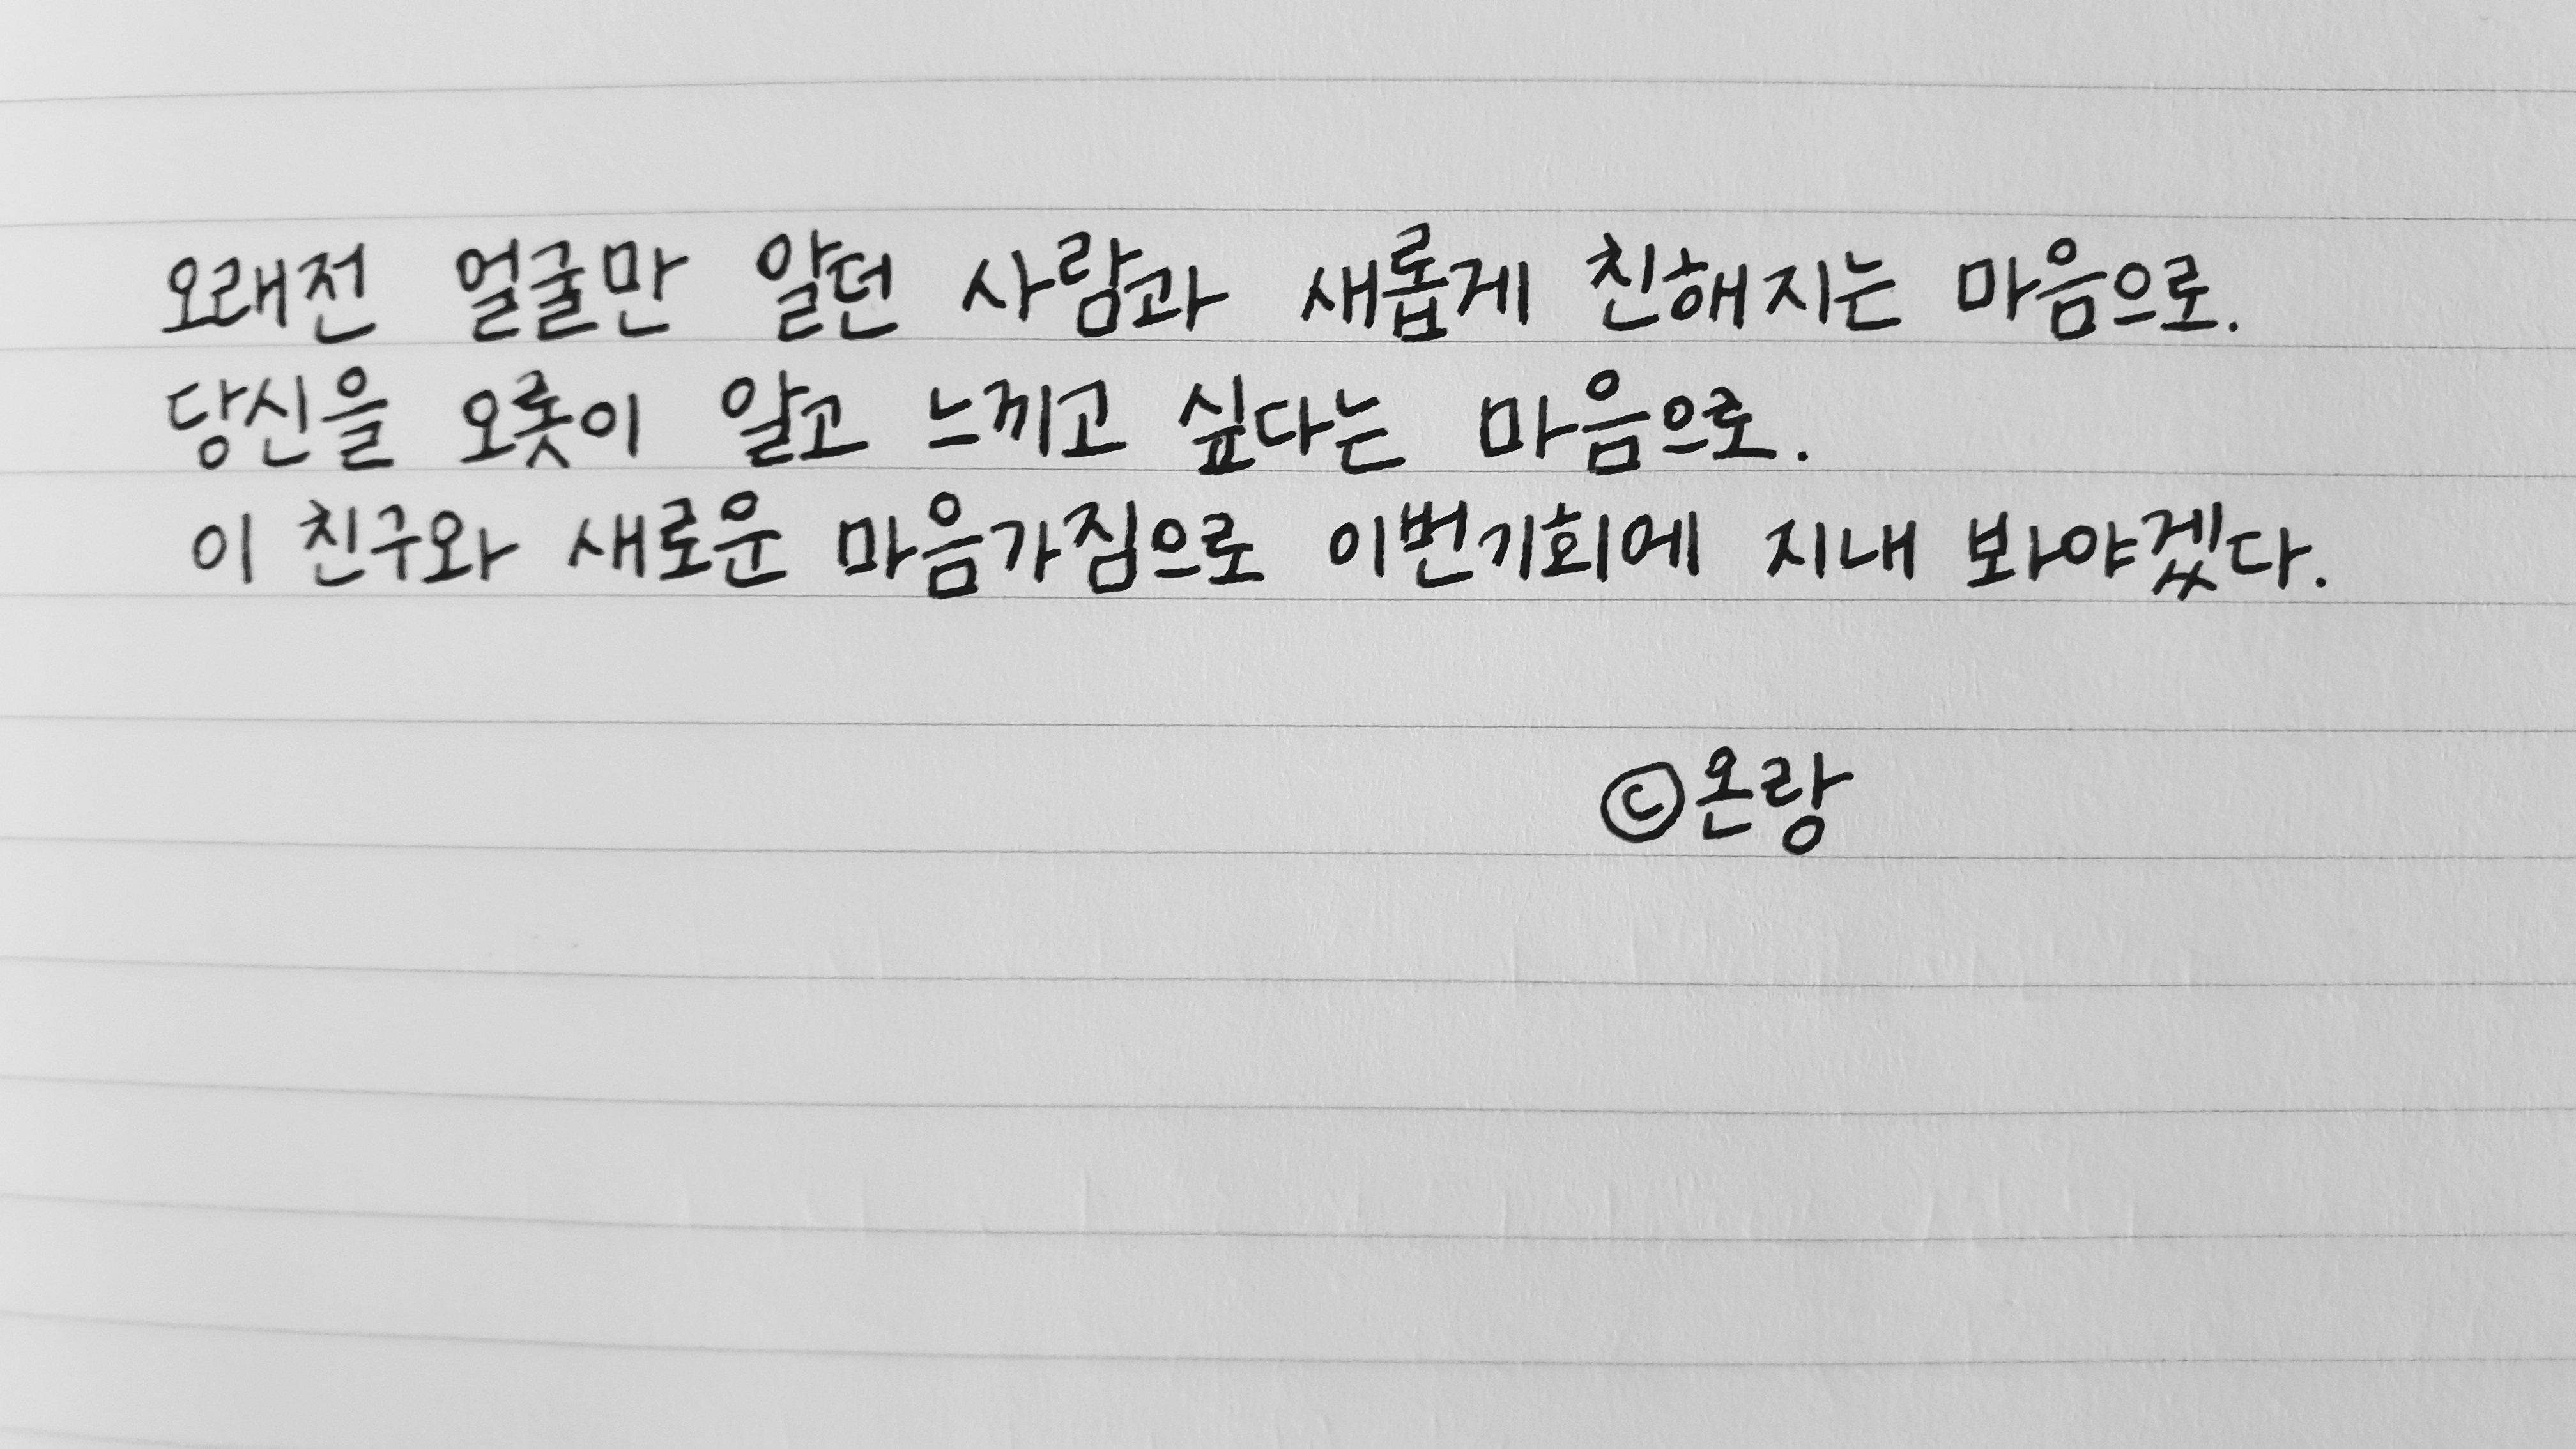 오래전 얼굴만 알던 사람과 새롭게 친해지는 마음으로.
당신을 오롯이 알고 느끼고 싶다는 마음으로.
이 친구와 새로운 마음가짐으로 이번기회에 지내 봐야겠다.
©온랑